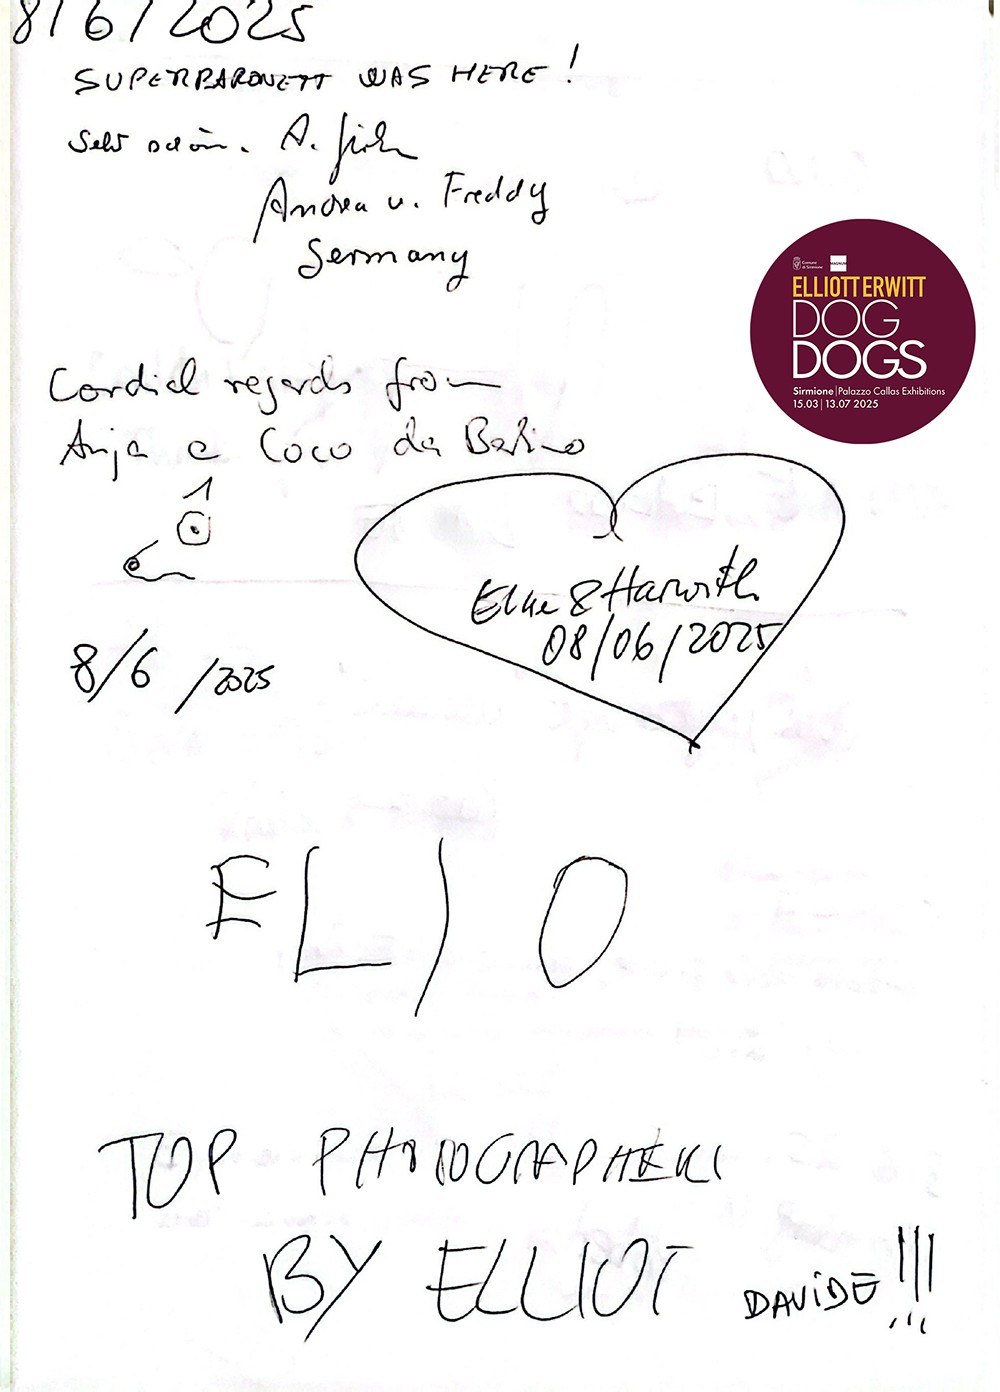 8/6/2025
SUPERBARONETT WAS HERE!
Sehr schön. A.
Andrea u. Freddy
Germany
Comune di Sirmione
MAGNUM
ELLIOTT ERWITT
DOG
DOGS
Sirmione | Palazzo Callas Exhibitions
15.03 | 13.07 2025
Cordial regards from
Anja e Coco da
8/6/2025
Elke &
08/06/2025
ELIO
TOP PHOTOGRAPHER
BY ELLIOT DAVIDE!!!